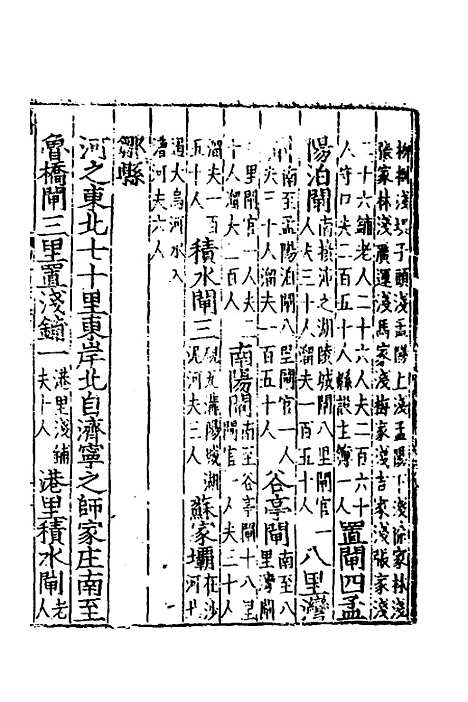 柳樹淺子頭淺孟陽上淺孟陽下淺徐家林淺
張家林淺廣運淺馬家淺梅家淺吉家淺張家淺
二十六鋪老人二十六人夫二百六十
人守口夫二百五十人縣設主簿一人
置閘四孟
陽泊閘
南接沛之湖陵城閘八里閘官一
人夫三十人溜夫一百五十人
八里灣
閘
南至孟陽泊閘八里閘官一人
夫三十人溜夫一百五十人
谷亭閘
南至八
里灣閘
八里閘官一人夫二
十人溜夫一百人
南陽閘
南至谷亭閘十八里
閘官一人夫三十人
溜夫一百
五十人
積水閘三
硯瓦溝陽城湖
泥河夫三人
蘇家壩
在沙
河北
遏大烏河水入
漕河夫六人
鄒縣
河之東北七十里東岸北自濟寧之師家庄南至
魯橋閘三里置淺鋪一
港里淺鋪
夫十人
港里積水閘
老
人